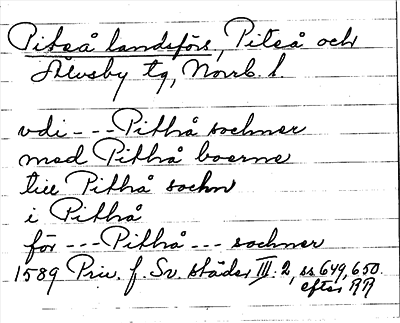 Piteå landsförs, Piteå och
Älvsby tg, Norrb. l.
vdi - - - Pithå sochner
med Pithå boerne
till Pithå sochn
i Pithå
för - - - Pithå - - - sochner
1589 Priv. f. Sv. städer III: 2, ss 649, 650.
efter RR